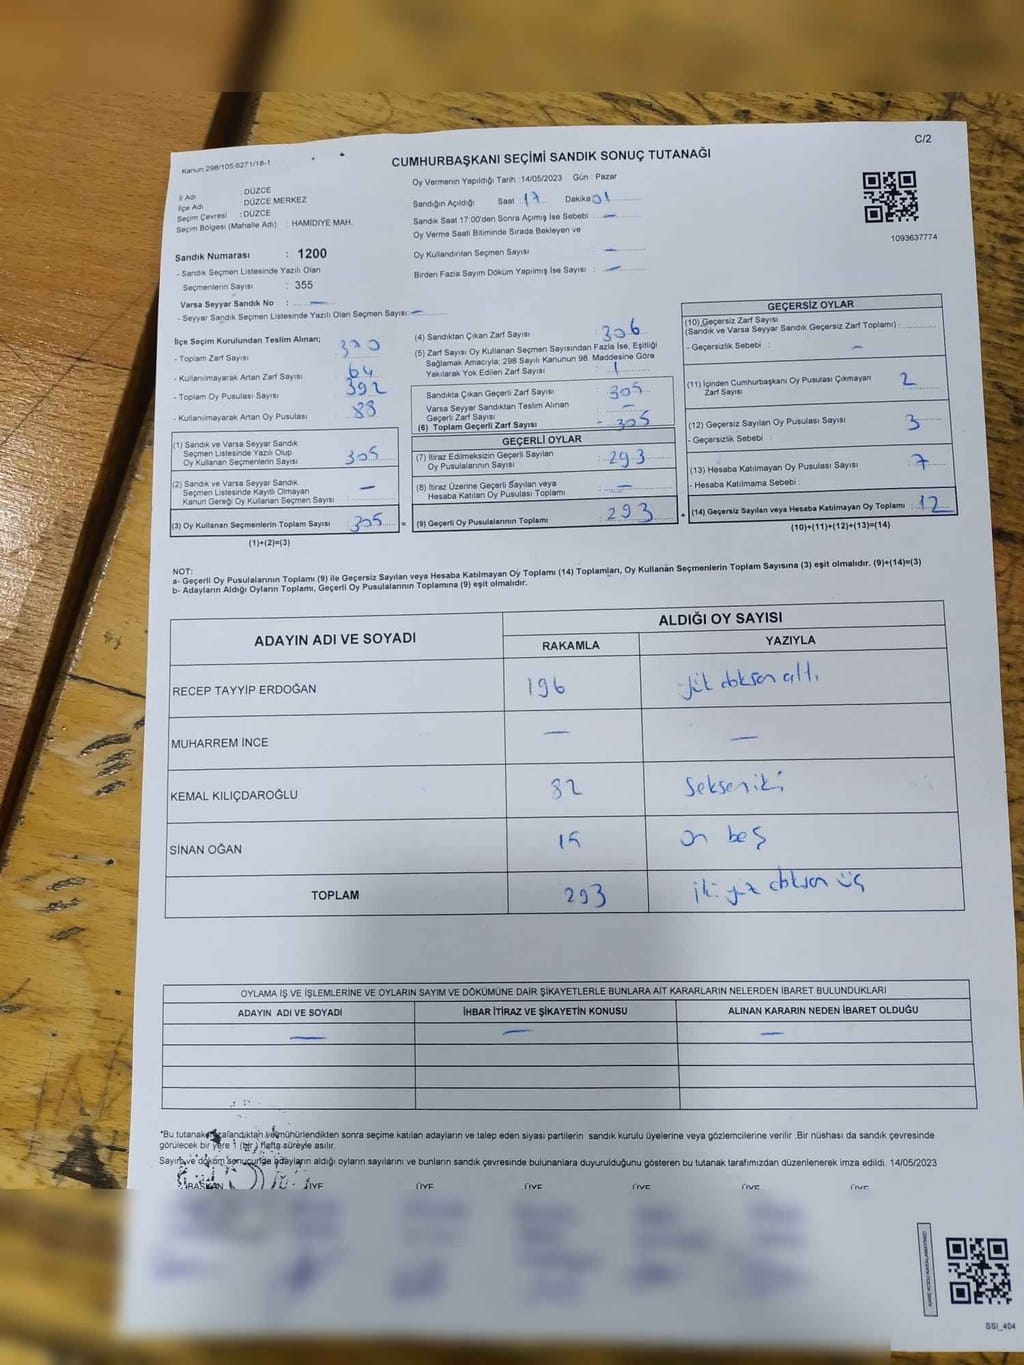 C/2
Kanun:298/105,6271/18-1
CUMHURBAŞKANI SEÇİMİ SANDIK SONUÇ TUTANAĞI
Oy Vermenin Yapıldığı Tarih :14/05/2023 Gün : Pazar
İl Adı : DÜZCE
İlçe Adı : DÜZCE MERKEZ
Seçim Çevresi : DÜZCE
Seçim Bölgesi (Mahalle Adı) : HAMİDİYE MAH.
Sandığın Açıldığı Saat : 17 Dakika 01
Sandık Saat 17:00'den Sonra Açımış İse Sebebi : —
Oy Verme Saati Bitiminde Sırada Bekleyen ve
Oy Kullandırılan Seçmen Sayısı : —
Birden Fazla Sayım Döküm Yapılmış İse Sayısı : —
1093637774
Sandık Numarası : 1200
- Sandık Seçmen Listesinde Yazılı Olan
Seçmenlerin Sayısı : 355
Varsa Seyyar Sandık No : —
- Seyyar Sandık Seçmen Listesinde Yazılı Olan Seçmen Sayısı: —
İlçe Seçim Kurulundan Teslim Alınan;
- Toplam Zarf Sayısı : 370
- Kullanılmayarak Artan Zarf Sayısı : 64
- Toplam Oy Pusulası Sayısı : 392
- Kullanılmayarak Artan Oy Pusulası : 83
(1) Sandık ve Varsa Seyyar Sandık
Seçmen Listesinde Yazılı Olup
Oy Kullanan Seçmenlerin Sayısı : 305
(2) Sandık ve Varsa Seyyar Sandık
Seçmen Listesinde Kayıtlı Olmayan
Kanun Gereği Oy Kullanan Seçmen Sayısı : —
(3) Oy Kullanan Seçmenlerin Toplam Sayısı : 305 =
(1)+(2)=(3)
(4) Sandıktan Çıkan Zarf Sayısı : 306
(5) Zarf Sayısı Oy Kullanan Seçmen Sayısından Fazla İse, Eşitliği
Sağlamak Amacıyla; 298 Sayılı Kanunun 98. Maddesine Göre
Yakılarak Yok Edilen Zarf Sayısı : 1
Sandıkta Çıkan Geçerli Zarf Sayısı : 305
Varsa Seyyar Sandıktan Teslim Alınan
Geçerli Zarf Sayısı : —
(6) Toplam Geçerli Zarf Sayısı : 305
GEÇERLİ OYLAR
(7) İtiraz Edilmeksizin Geçerli Sayılan
Oy Pusulalarının Sayısı : 293
(8) İtiraz Üzerine Geçerli Sayılan veya
Hesaba Katılan Oy Pusulası Toplamı : —
(9) Geçerli Oy Pusulalarının Toplamı : 293 +
GEÇERSİZ OYLAR
(10) Geçersiz Zarf Sayısı
(Sandık ve Varsa Seyyar Sandık Geçersiz Zarf Toplamı) :
- Geçersizlik Sebebi : —
(11) İçinden Cumhurbaşkanı Oy Pusulası Çıkmayan
Zarf Sayısı : 2
(12) Geçersiz Sayılan Oy Pusulası Sayısı : 3
- Geçersizlik Sebebi :
(13) Hesaba Katılmayan Oy Pusulası Sayısı : 7
- Hesaba Katılmama Sebebi :
(14) Geçersiz Sayılan veya Hesaba Katılmayan Oy Toplamı : 12
(10)+(11)+(12)+(13)=(14)
NOT:
a- Geçerli Oy Pusulalarının Toplamı (9) ile Geçersiz Sayılan veya Hesaba Katılmayan Oy Toplamı (14) Toplamları, Oy Kullanan Seçmenlerin Toplam Sayısına (3) eşit olmalıdır. (9)+(14)=(3)
b- Adayların Aldığı Oyların Toplamı, Geçerli Oy Pusulalarının Toplamına (9) eşit olmalıdır.
ADAYIN ADI VE SOYADI
ALDIĞI OY SAYISI
RAKAMLA YAZIYLA
RECEP TAYYİP ERDOĞAN 196 yüz doksan altı
MUHARREM İNCE — —
KEMAL KILIÇDAROĞLU 82 Sekseniki
SİNAN OĞAN 15 on beş
TOPLAM 293 iki yüz doksan üç
OYLAMA İŞ VE İŞLEMLERİNE VE OYLARIN SAYIM VE DÖKÜMÜNE DAİR ŞİKAYETLERLE BUNLARA AİT KARARLARIN NELERDEN İBARET BULUNDUKLARI
ADAYIN ADI VE SOYADI İHBAR İTİRAZ VE ŞİKAYETİN KONUSU ALINAN KARARIN NEDEN İBARET OLDUĞU
— — —
*Bu tutanak imzalandıktan ve mühürlendikten sonra seçime katılan adayların ve talep eden siyasi partilerin sandık kurulu üyelerine veya gözlemcilerine verilir .Bir nüshası da sandık çevresinde
görülecek bir yere 1 (bir) hafta süreyle asılır.
Sayım ve döküm sonucunda adayların aldığı oyların sayılarını ve bunların sandık çevresinde bulunanlara duyurulduğunu gösteren bu tutanak tarafımızdan düzenlenerek imza edildi. 14/05/2023
BAŞKAN ÜYE ÜYE ÜYE ÜYE ÜYE ÜYE
KARE KODU KARALAMAYINIZ!
SSI_404